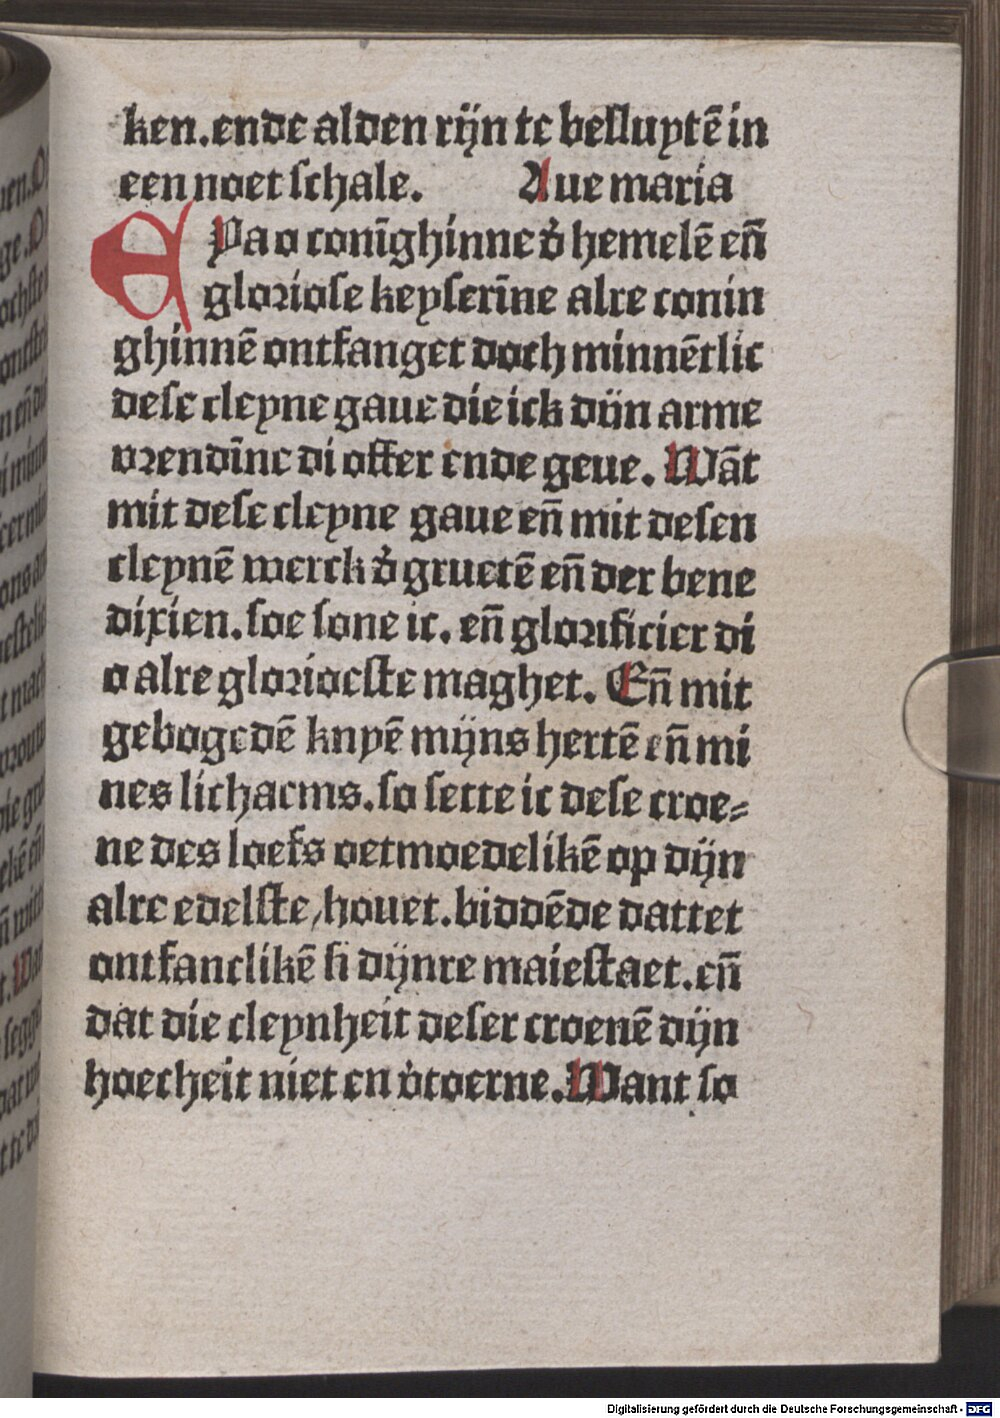 ken.ende alden rijn te besluytē in
een noet schale. Aue maria
EYa o conīghinne v̓ hemelē eñ
gloriose keyserīne alre conin
ghinnē ontfanget doch minnētlic
dese cleyne gaue die ick dijn arme
vrendīne di offer ende geue. Wāt
mit dese cleyne gaue eñ mit desen
cleynē werck v̓ gruetē eñ der bene
dixien. soe lone ic. eñ glorificier di
o alre glorioeste maghet. Eñ mit
gebogedē knyē mijns hertē eñ mi
nes lichaems. so sette ic dese croe=
ne des loefs oetmoedelikē op dijn
alre edelste/houet.biddēde dattet
ontfanclikē si dijnre maiestaet.eñ
dat die cleynheit deser croenē dijn
hoecheit niet en v̓toerne.Want so
Digitalisierung gefördert durch die Deutsche Forschungsgemeinschaft - DFG